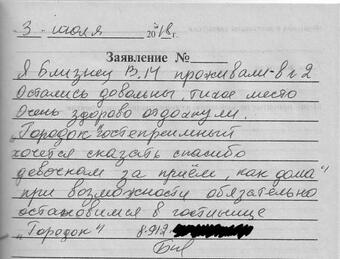 3 июля 2018г.
Заявление №
Я Близнец В.И проживали в г 2
Остались довольны, тихое место
Очень здорово отдохнули.
"Городок" гостеприимный
хочется сказать спасибо
девочкам за приём, "как дома"
при возможности обязательно
остановимся в гостинице
"Городок" 8-912